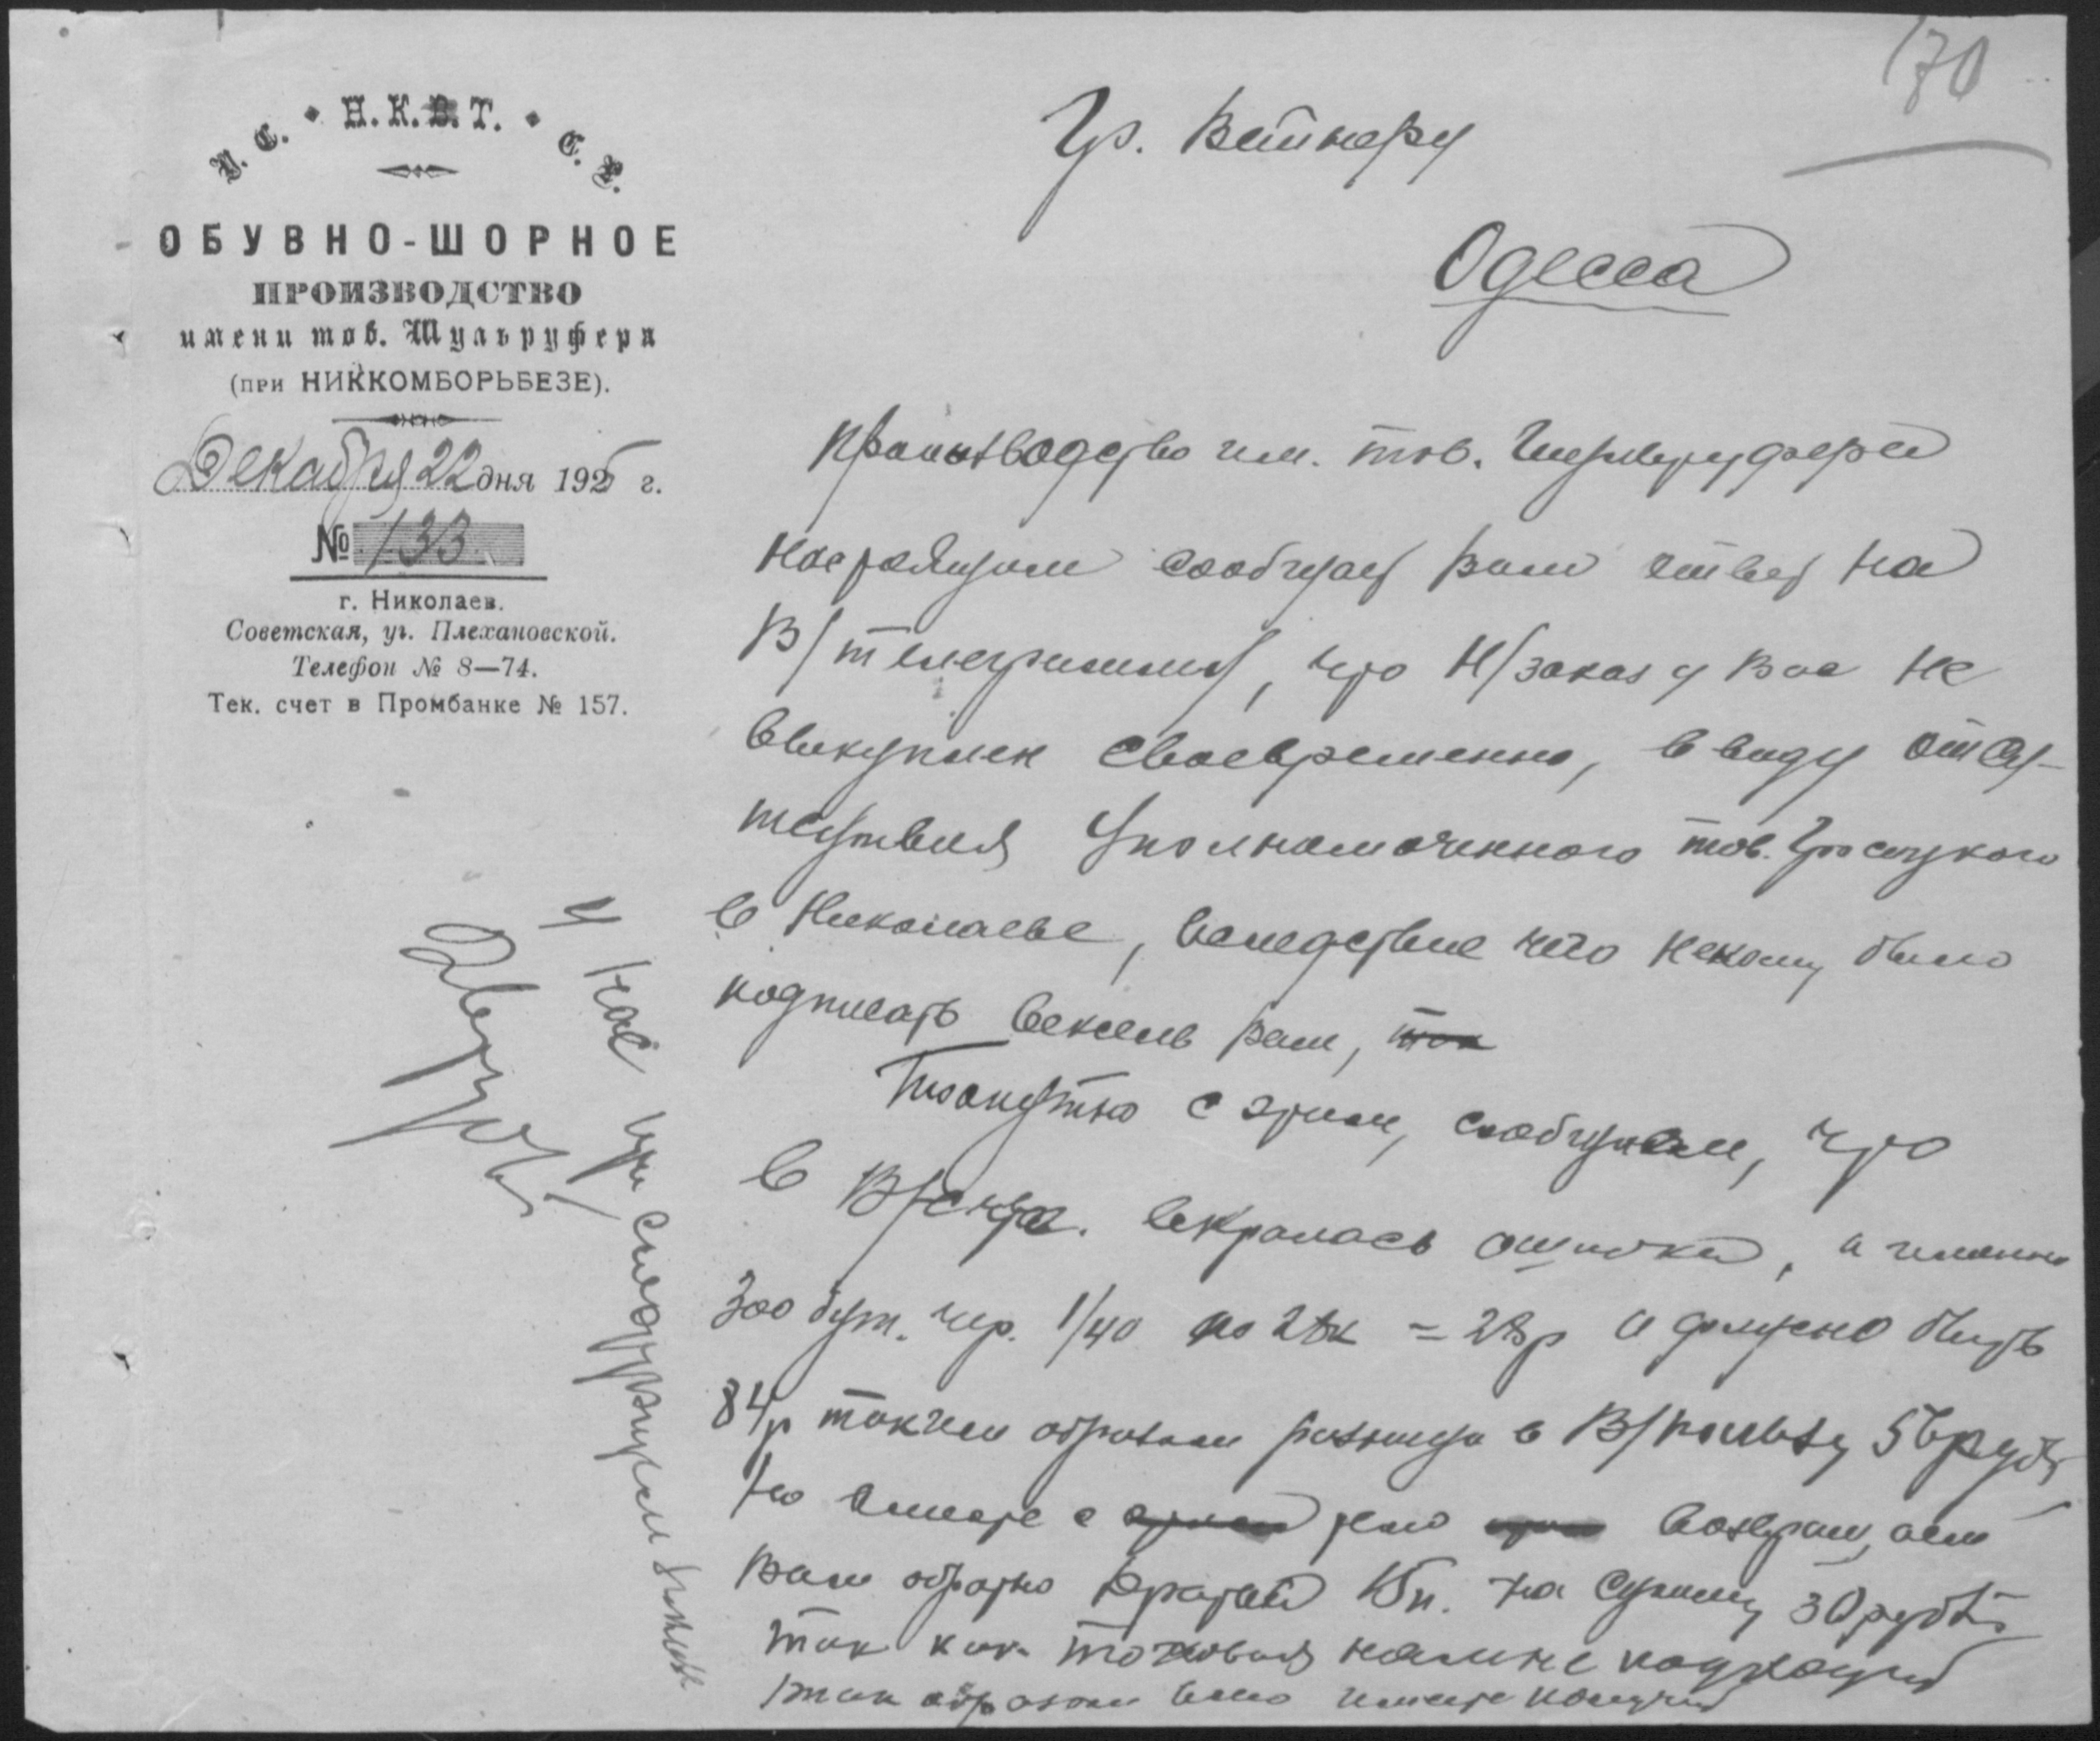 170
У. С. Н. К. В. Т. С. Р.
ОБУВНО-ШОРНОЕ
ПРОИЗВОДСТВО
имени тов. Шульруфера
(при НИККОМБОРЬБЕЗЕ).
Декабря 22 дня 1925 г.
№ 133
г. Николаев.
Советская, уг. Плехановской.
Телефон № 8—74.
Тек. счет в Промбанке № 157.
Гр. Вейнеру
Одесса
Производство им. тов. Шульруфера
настоящим сообщает Вам ответ на
В/телеграмму, что Н/заказ у Вас не
выкуплен своевременно, ввиду отсу-
тствия Уполномоченного тов.
в Николаеве, вследствие чего некому было
подписать вексель Вам, так
Попутно с этим, сообщаем, что
в В/счет. вкралась ошибка, а именно
300 бут. чер. 1/40 по 28к = 28р а должно быть
84р таким образом разница в В/пользу 56 руб.
но вместе с этим тем возвращаем
Вам обратно на сумму 30 руб.
так как таковая нам не подходит
таким образом
у нас